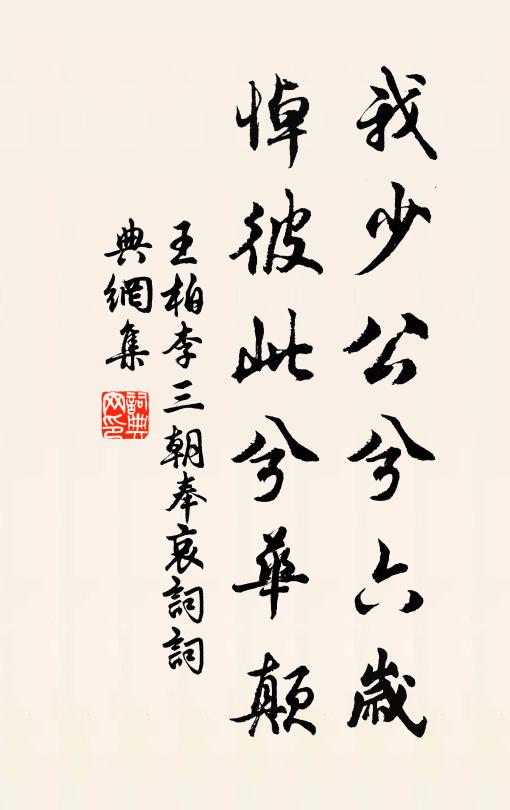 我少公兮六歲
悼彼此兮華顛
王柏李三朝奉哀詞詞
典網集
詞典網印